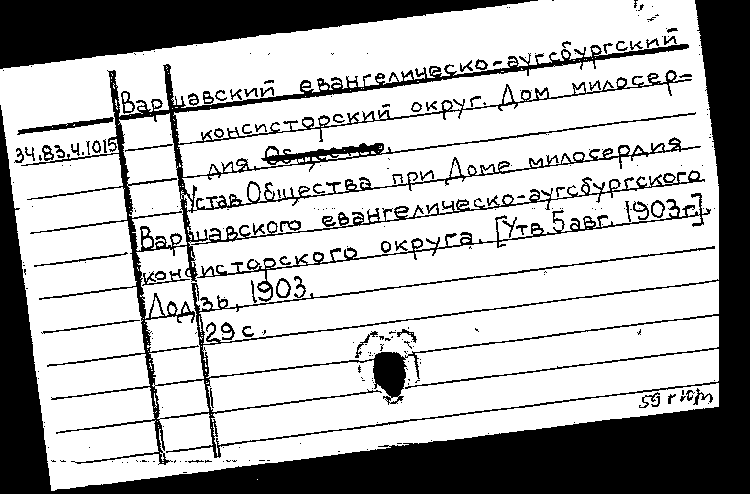 Варшавский евангелическо-аугсбургский
консисторский округ. Дом милосер-
34.83.4.1015
дия. Общество.
Устав Общества при Доме милосердия
Варшавского евангелическо-аугсбургского
консисторского округа. [Утв. 5 авг. 1903 г.].
Лодзь, 1903.
29 с.
59 г